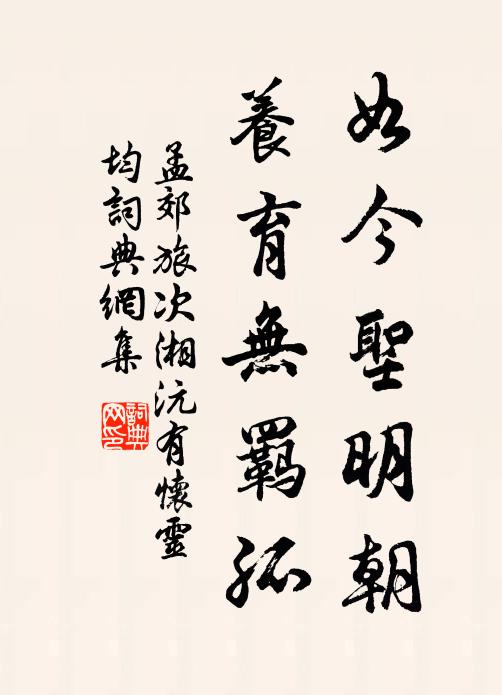 如今聖明朝
養育無羈孤
孟郊旅次湘沅有懷靈
均詞典網集
詞典
网印